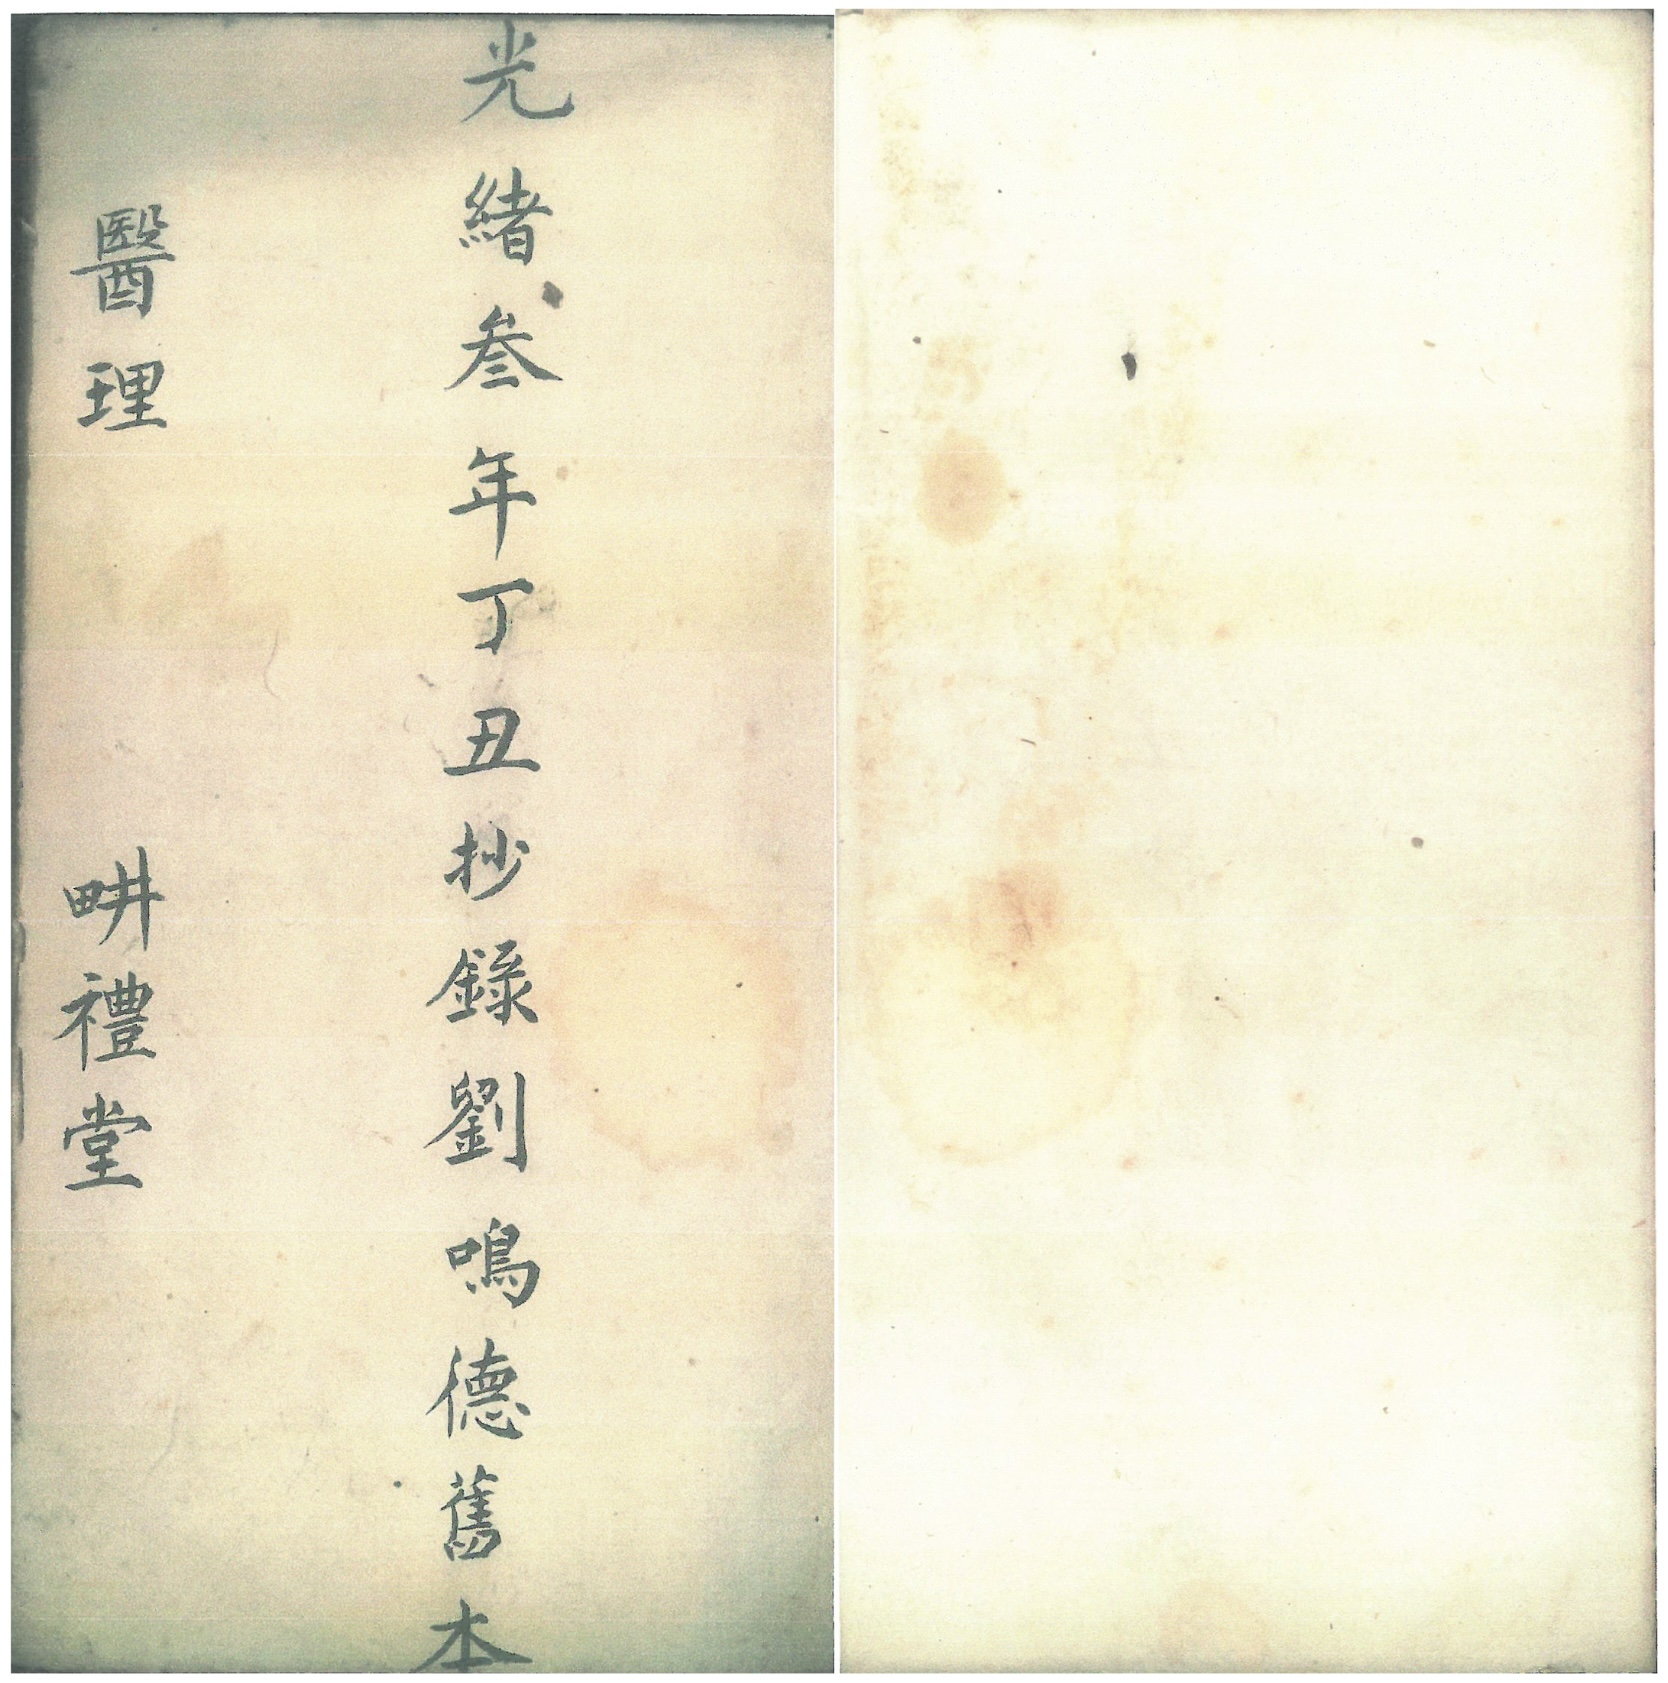 光緒叁年丁丑抄錄劉鳴德舊本
醫理
畊禮堂